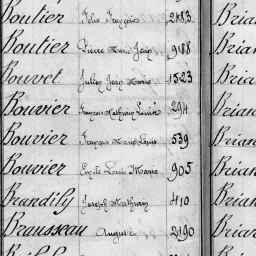 Boutier Félix François 2483 Brian
Boutier Pierre Marie Jean 988 Brian
Bouvet Julien Jean Marie 1523 Bria
Bouvier François Mathurin 294 Brian
Bouvier François Marie Louis 539 Brian
Bouvier Louis Marie 905 Brian
Brandily Joseph Mathurin 410 Brian
Brausseau Auguste 2190 Brian